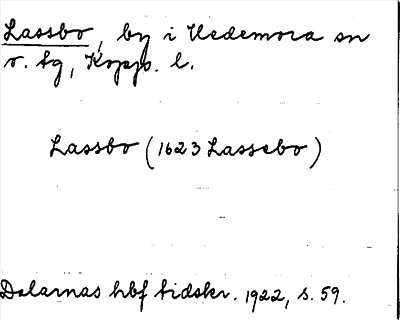 Lassbo, by i Hedemora sn
o. tg, Kopps. l.
Lassbo (1623 Lassebo)
Dalarnas hbf tidskr. 1922, s. 59.